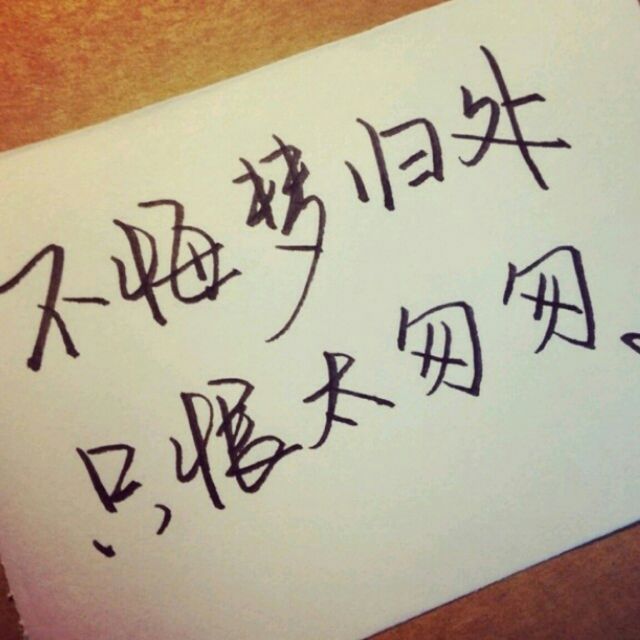 不悔梦归处
只恨太匆匆。